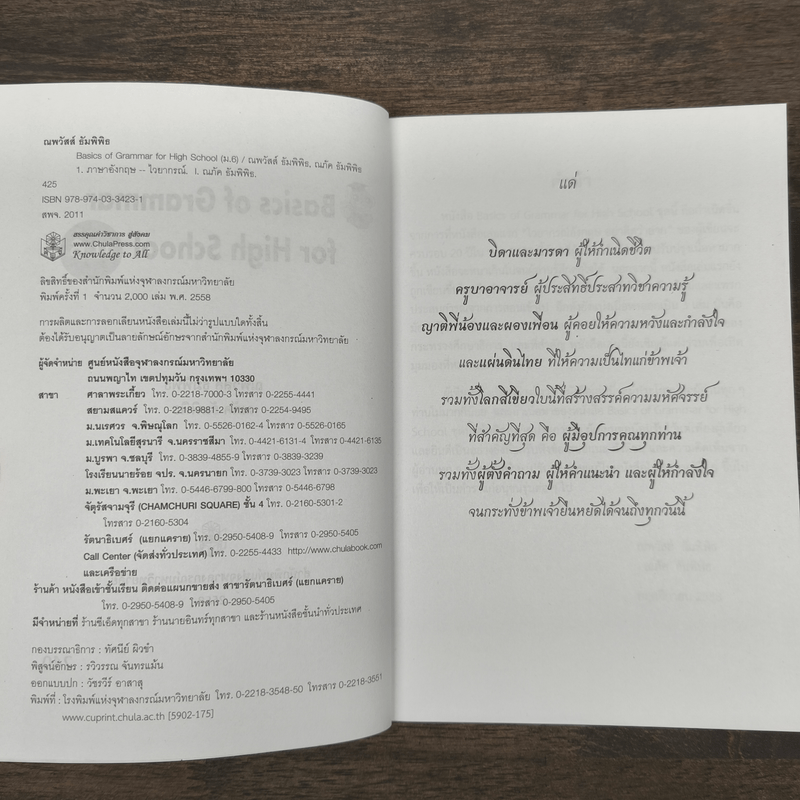 ณพวัสส์ ธัมพิพิธ
Basics of Grammar for High School (ม.6) / ณพวัสส์ ธัมพิพิธ, ณภัค ธัมพิพิธ
1. ภาษาอังกฤษ -- ไวยากรณ์. I. ณภัค ธัมพิพิธ.
425
ISBN 978-974-03-3423-1
สพจ. 2011
สรรคุณค่าวิชาการ สู่สังคม
www.ChulaPress.com
Knowledge to All
ลิขสิทธิ์ของสำนักพิมพ์แห่งจุฬาลงกรณ์มหาวิทยาลัย
พิมพ์ครั้งที่ 1 จำนวน 2,000 เล่ม พ.ศ. 2558
การผลิตและการลอกเลียนหนังสือเล่มนี้ไม่ว่ารูปแบบใดทั้งสิ้น
ต้องได้รับอนุญาตเป็นลายลักษณ์อักษรจากสำนักพิมพ์แห่งจุฬาลงกรณ์มหาวิทยาลัย
ผู้จัดจำหน่าย ศูนย์หนังสือจุฬาลงกรณ์มหาวิทยาลัย
ถนนพญาไท เขตปทุมวัน กรุงเทพฯ 10330
สาขา ศาลาพระเกี้ยว โทร. 0-2218-7000-3 โทรสาร 0-2255-4441
สยามสแควร์ โทร. 0-2218-9881-2 โทรสาร 0-2254-9495
ม.นเรศวร จ.พิษณุโลก โทร. 0-5526-0162-4 โทรสาร 0-5526-0165
ม.เทคโนโลยีสุรนารี จ.นครราชสีมา โทร. 0-4421-6131-4 โทรสาร 0-4421-6135
ม.บูรพา จ.ชลบุรี โทร. 0-3839-4855-9 โทรสาร 0-3839-3239
โรงเรียนนายร้อย จปร. จ.นครนายก โทร. 0-3739-3023 โทรสาร 0-3739-3023
ม.พะเยา จ.พะเยา โทร. 0-5446-6799-800 โทรสาร 0-5446-6798
จัตุรัสจามจุรี (CHAMCHURI SQUARE) ชั้น 4 โทร. 0-2160-5301-2
โทรสาร 0-2160-5304
รัตนาธิเบศร์ (แยกแคราย) โทร. 0-2950-5408-9 โทรสาร 0-2950-5405
Call Center (จัดส่งทั่วประเทศ) โทร. 0-2255-4433 http://www.chulabook.com
และเครือข่าย
ร้านค้า หนังสือเข้าชั้นเรียน ติดต่อแผนกขายส่ง สาขารัตนาธิเบศร์ (แยกแคราย)
โทร. 0-2950-5408-9 โทรสาร 0-2950-5405
มีจำหน่ายที่ ร้านซีเอ็ดทุกสาขา ร้านนายอินทร์ทุกสาขา และร้านหนังสือชั้นนำทั่วประเทศ
กองบรรณาธิการ : ทัศนีย์ ผิวขำ
พิสูจน์อักษร : รวิวรรณ จันทรแม้น
ออกแบบปก : วัชรวีร์ อาสาสุ
พิมพ์ที่ : โรงพิมพ์แห่งจุฬาลงกรณ์มหาวิทยาลัย โทร. 0-2218-3548-50 โทรสาร 0-2218-3551
www.cuprint.chula.ac.th [5902-175]
แด่
บิดาและมารดา ผู้ให้กำเนิดชีวิต
ครูบาอาจารย์ ผู้ประสิทธิ์ประสาทวิชาความรู้
ญาติพี่น้องและผองเพื่อน ผู้คอยให้ความหวังและกำลังใจ
และแผ่นดินไทย ที่ให้ความเป็นไทแก่ข้าพเจ้า
รวมทั้งโลกสีเขียวใบนี้ที่สร้างสรรค์ความมหัศจรรย์
ที่สำคัญที่สุด คือ ผู้มีอุปการคุณทุกท่าน
รวมทั้งผู้ตั้งคำถาม ผู้ให้คำแนะนำ และผู้ให้กำลังใจ
จนกระทั่งข้าพเจ้ายืนหยัดได้จนถึงทุกวันนี้